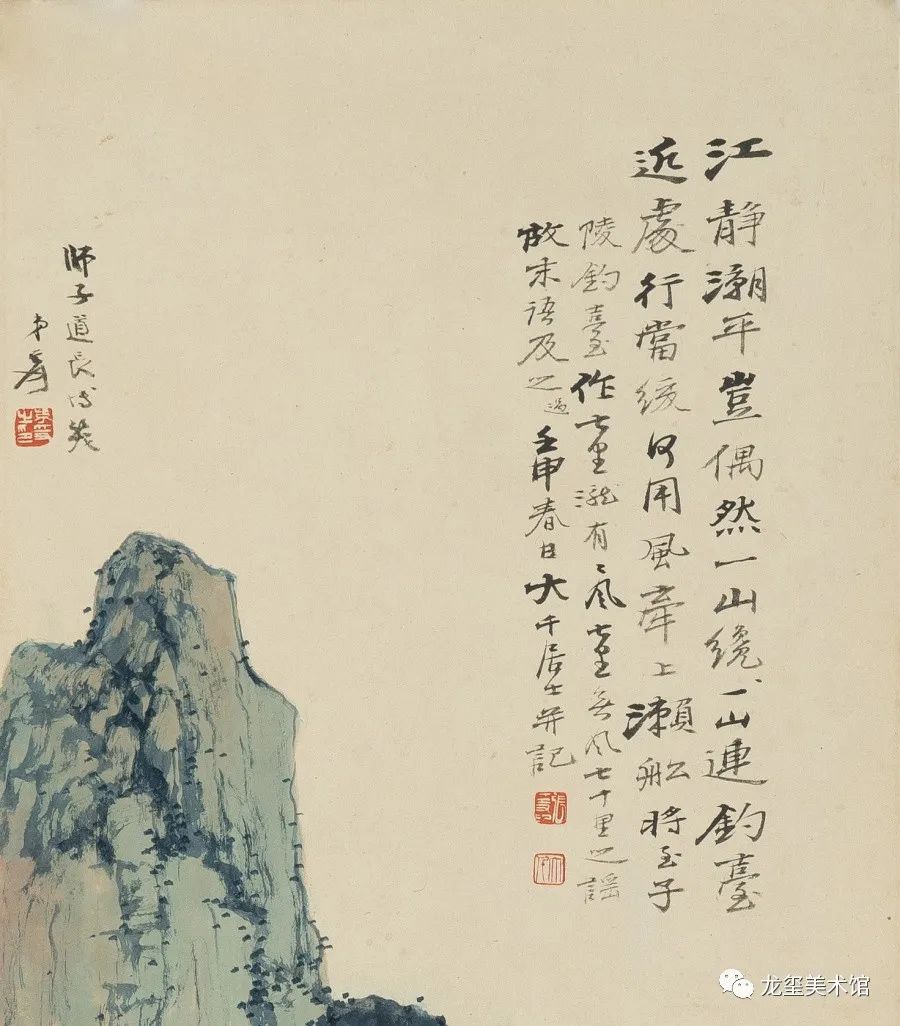 江静潮平豈偶然一山纔一山連釣臺
近處行當緩何用風牽上瀨船時至子
陵釣臺作七里瀧有風七里無風七十里之謠
故末語及之過壬申春日大千居士并記
師子道長
弟爰
龙玺美术馆